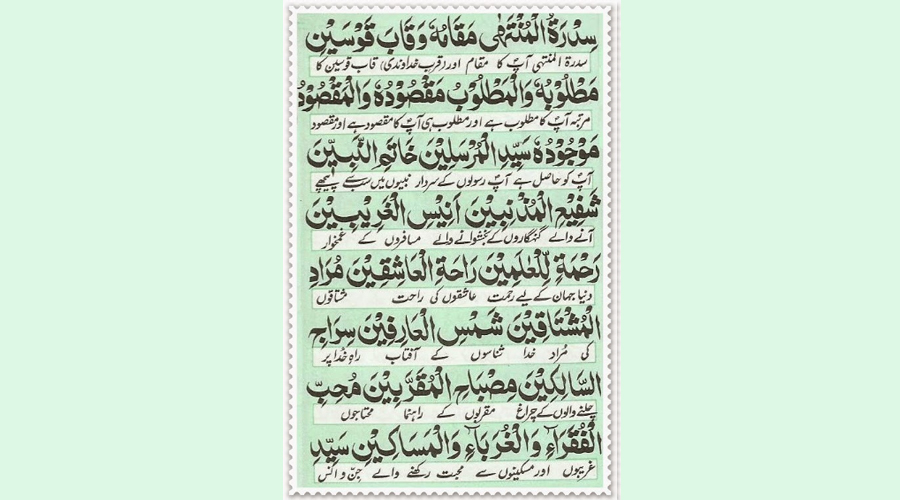 سِدْرَةُ الْمُنْتَهٰى مَقَامُهٗ وَقَابَ قَوْسَيْنِ
سدرۃ المنتہیٰ آپؐ کا مقام اور (قربِ خداوندی) قاب قوسین کا
مَطْلُوْبُهٗ وَالْمَطْلُوْبُ مَقْصُوْدُهٗ وَالْمَقْصُوْدُ
مرتبہ آپؐ کا مطلوب ہے اور مطلوب ہی آپؐ کا مقصود ہے اور مقصود
مَوْجُوْدُهٗ سَيِّدِ الْمُرْسَلِيْنَ خَاتَمِ النَّبِيِّيْنَ
آپؐ کو حاصل ہے آپؐ رسولوں کے سردار نبیوں میں سب سے پیچھے
شَفِيْعِ الْمُذْنِبِيْنَ اَنِيْسِ الْغَرِيْبِيْنَ
آنے والے گنہگاروں کے بخشوانے والے مسافروں کے غمخوار
رَحْمَةٍ لِّلْعٰلَمِيْنَ رَاحَةِ الْعَاشِقِيْنَ مُرَادِ
دنیا جہان کے لیے رحمت عاشقوں کی راحت مشتاقوں
الْمُشْتَاقِيْنَ شَمْسِ الْعَارِفِيْنَ سِرَاجِ
کی مُراد خدا شناسوں کے آفتاب راہِ خدا پر
السَّالِكِيْنَ مِصْبَاحِ الْمُقَرَّبِيْنَ مُحِبِّ
چلنے والوں کے چراغ مقربوں کے راہنما محتاجوں
الْفُقَرَآءِ وَالْغُرَبَآءِ وَالْمَسَاكِيْنَ سَيِّدِ
غریبوں اور مسکینوں سے محبت رکھنے والے جنّ و انس